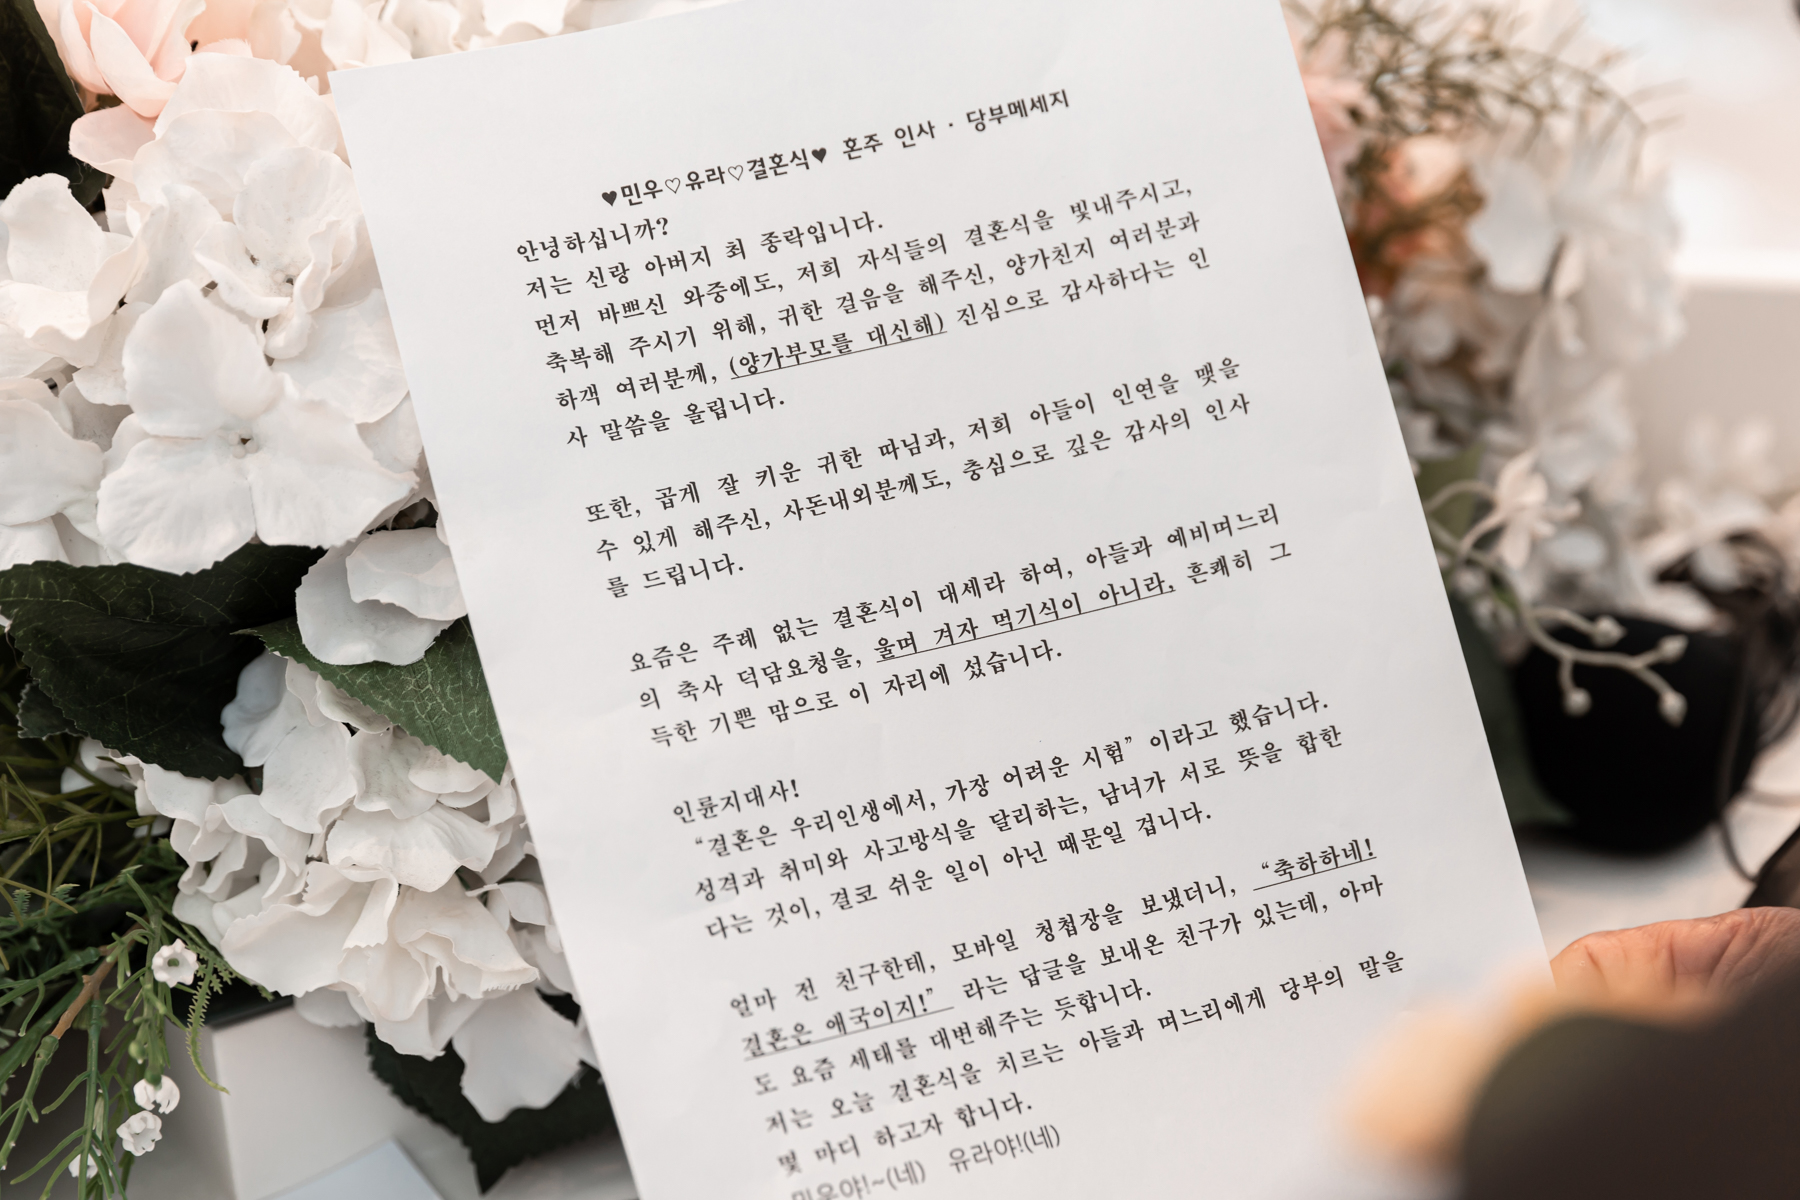 ♥민우♡유라♡결혼식♥ 혼주 인사 · 당부메세지
안녕하십니까?
저는 신랑 아버지 최 종락입니다.
먼저 바쁘신 와중에도, 저희 자식들의 결혼식을 빛내주시고,
축복해 주시기 위해, 귀한 걸음을 해주신, 양가친지 여러분과
하객 여러분께, (양가부모를 대신해) 진심으로 감사하다는 인
사 말씀을 올립니다.
또한, 곱게 잘 키운 귀한 따님과, 저희 아들이 인연을 맺을
수 있게 해주신, 사돈내외분께도, 충심으로 깊은 감사의 인사
를 드립니다.
요즘은 주례 없는 결혼식이 대세라 하여, 아들과 예비며느리
의 축사 덕담요청을, 울며 겨자 먹기식이 아니라, 흔쾌히 그
득한 기쁜 맘으로 이 자리에 섰습니다.
인륜지대사!
“결혼은 우리인생에서, 가장 어려운 시험” 이라고 했습니다.
성격과 취미와 사고방식을 달리하는, 남녀가 서로 뜻을 합한
다는 것이, 결코 쉬운 일이 아닌 때문일 겁니다.
얼마 전 친구한테, 모바일 청첩장을 보냈더니, “축하하네!
결혼은 애국이지!” 라는 답글을 보내온 친구가 있는데, 아마
도 요즘 세태를 대변해주는 듯합니다.
저는 오늘 결혼식을 치르는 아들과 며느리에게 당부의 말을
몇 마디 하고자 합니다.
민우야!~(네) 유라야!(네)